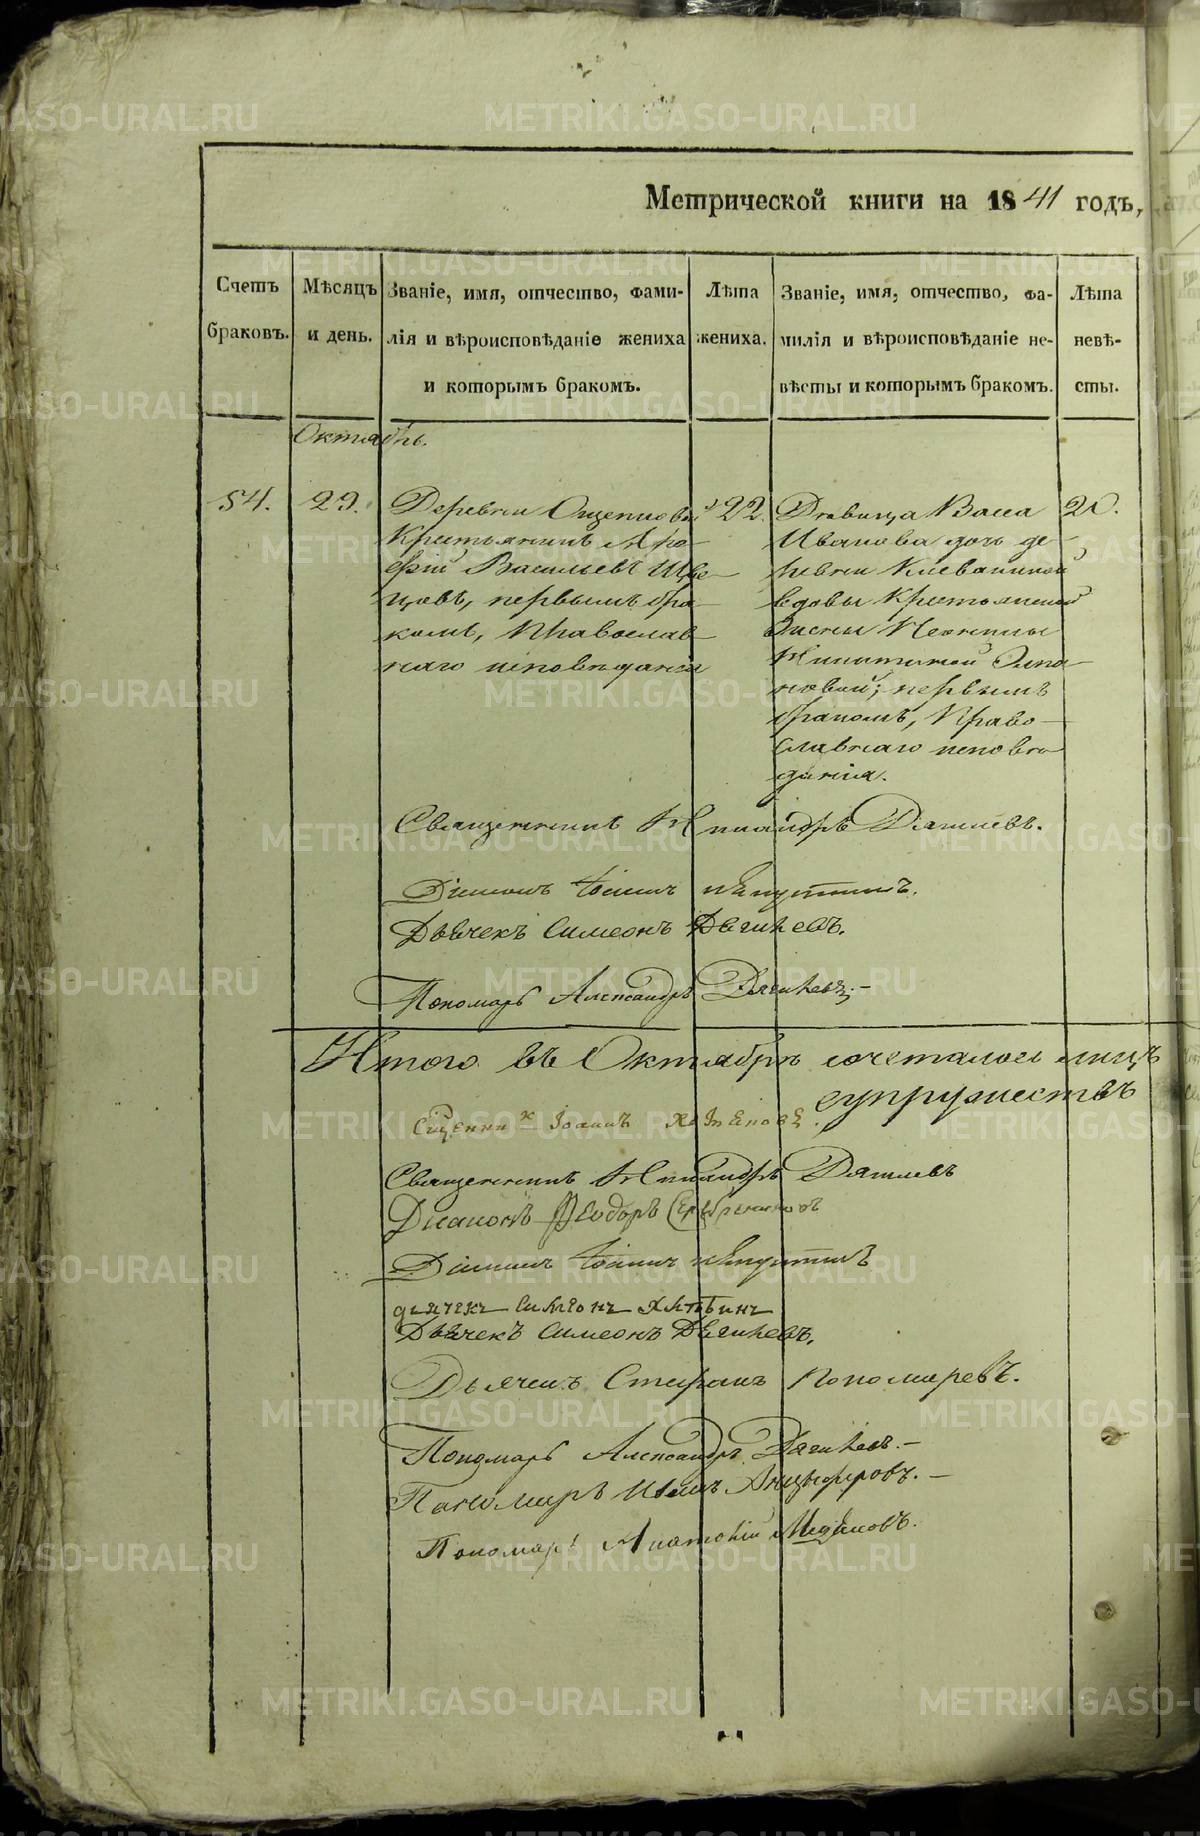 Метрической книги на 1841 годъ,
Счетъ браковъ.
Мѣсяцъ и день.
Званіе, имя, отчество, фами-
лія и вѣроисповѣданіе жениха
и которымъ бракомъ.
Лѣта жениха.
Званіе, имя, отчество, фа-
милія и вѣроисповѣданіе не-
вѣсты и которымъ бракомъ.
Лѣта невѣ-
сты.
Октябрь.
54.
29.
Деревни Ощепковой
Крестьянинъ Яро-
фѣй Васильевъ Шве-
цовъ, первымъ бра-
комъ, Православ-
наго исповѣданія
22.
Дѣвица Васса
Иванова дочь де-
ревни Клевакиной
вдовы крестьянской
жены Неонилы
Никитиной
первымъ
бракомъ, Право-
славнаго исповѣ-
данія.
20.
Священникъ Никандръ Дягилевъ.
Діаконъ Іоаннъ
Дьячекъ Симеонъ Дягилевъ.
Пономарь Александръ Дягилевъ.
Итого въ Октябрѣ сочеталось лицъ
супружествъ
Сщенникъ Іоаннъ
Священникъ Никандръ Дягилевъ
Діаконъ Ѳеодоръ Серебренниковъ
Діаконъ Іоаннъ
дьячекъ Симеонъ Хлѣбинъ
Дьячекъ Симеонъ Дягилевъ.
Дьячекъ Стефанъ Пономаревъ.
Пономарь Александръ Дягилевъ.
Пономарь Иванъ Анцыферовъ.
Пономарь Анатолій
METRIKI.GASO-URAL.RU